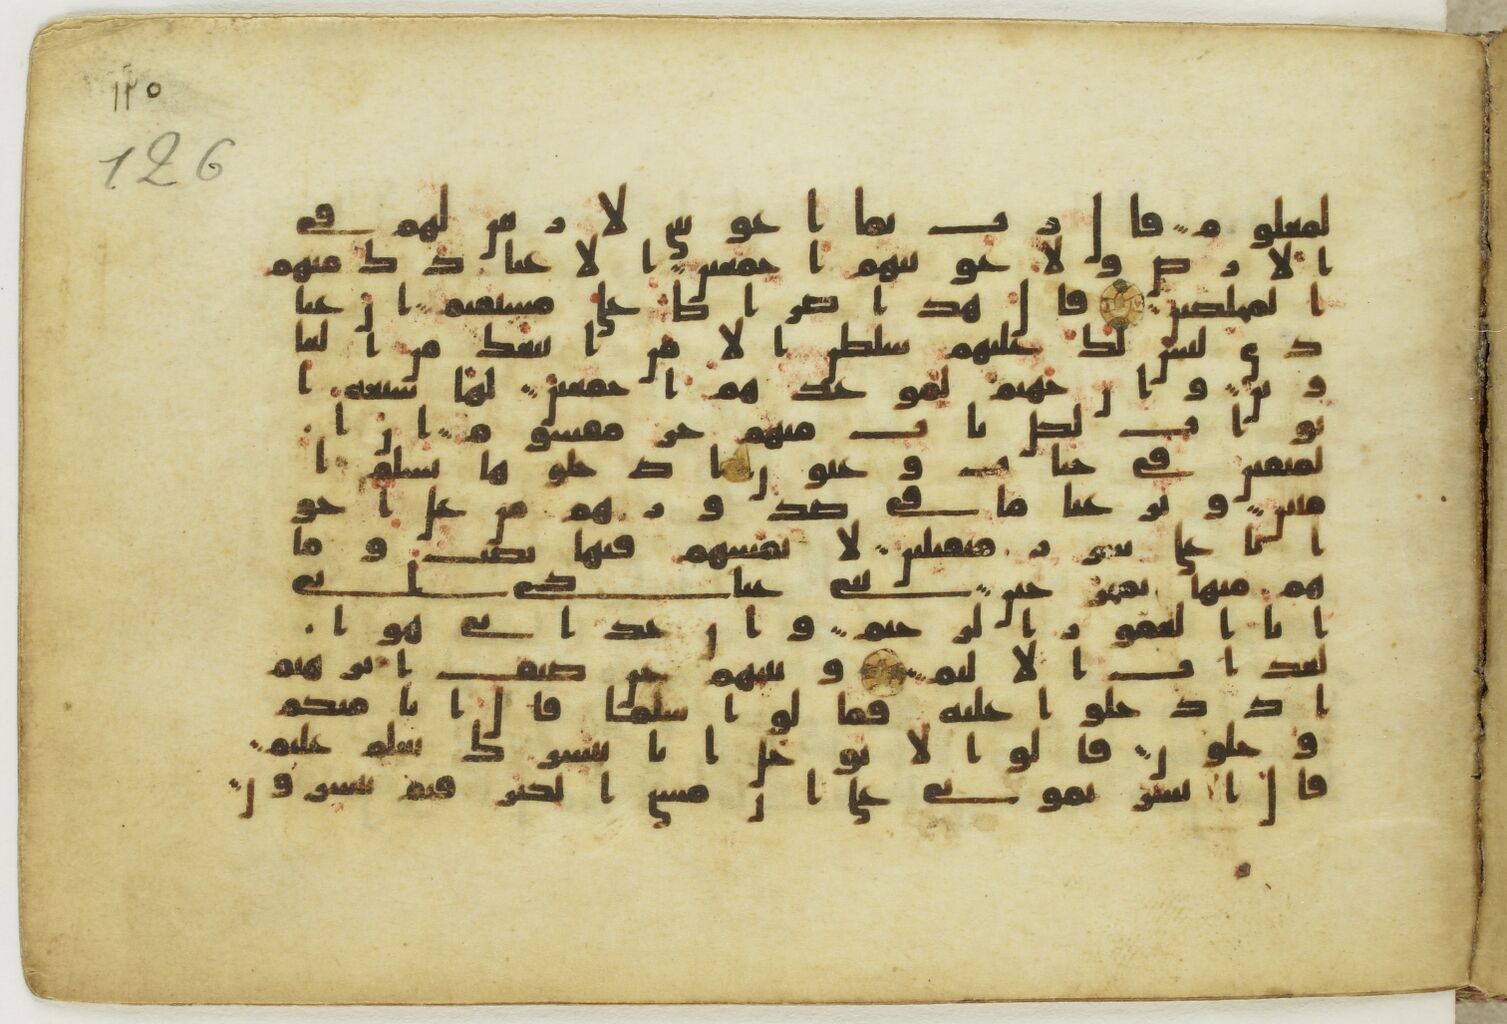 ١٢٥
126
لمعلوم قال رب بما اغويتني لازينن لهم في
الارض ولاغوينهم اجمعين الا عبادك منهم
المخلصين قال هذا صرط علي مستقيم ان عبا
دي ليس لك عليهم سلطن الا من اتبعك من الغا
وين وان جهنم لموعدهم اجمعين لها سبعة ا
بواب لكل باب منهم جز مقسوم ان ا
لمتقين في جنات وعيون ادخلوها بسلم ا
منين ونزعنا ما في صدورهم من غل اخو
انا على سرر متقبلين لا يمسهم فيها نصب وما
هم منها بمخرجين نبي عبادي اني
انا الغفور الرحيم وان عذابي هو ا
لعذاب الاليم ونبيهم عن ضيف ابرهيم
اذ دخلوا عليه فقالوا سلما قال انا منكم
وجلون قالوا لا توجل انا نبشرك بغلم عليم
قال ابشرتموني على ان مسني الكبر فبم تبشرون